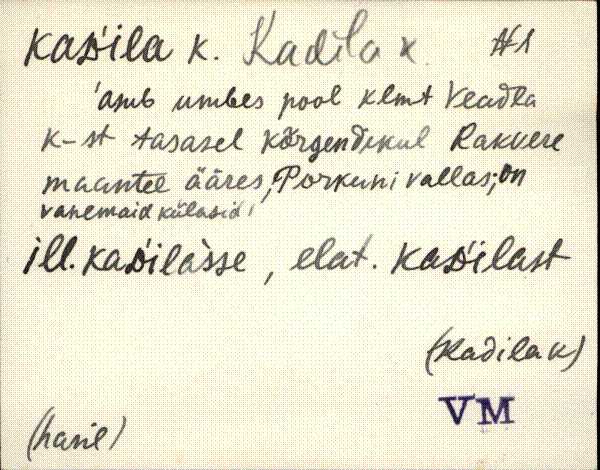 kaďila k. Kadila k. AI
'asub umbes pool klmt Veadla
k-st tasasel kõrgendikul Rakvere
maantee ääres, Porkuni vallas; on
vanemaid külasid'
ill. kaďilàsse, elat. kaďilast
(Kadila k)
VM
(haril)